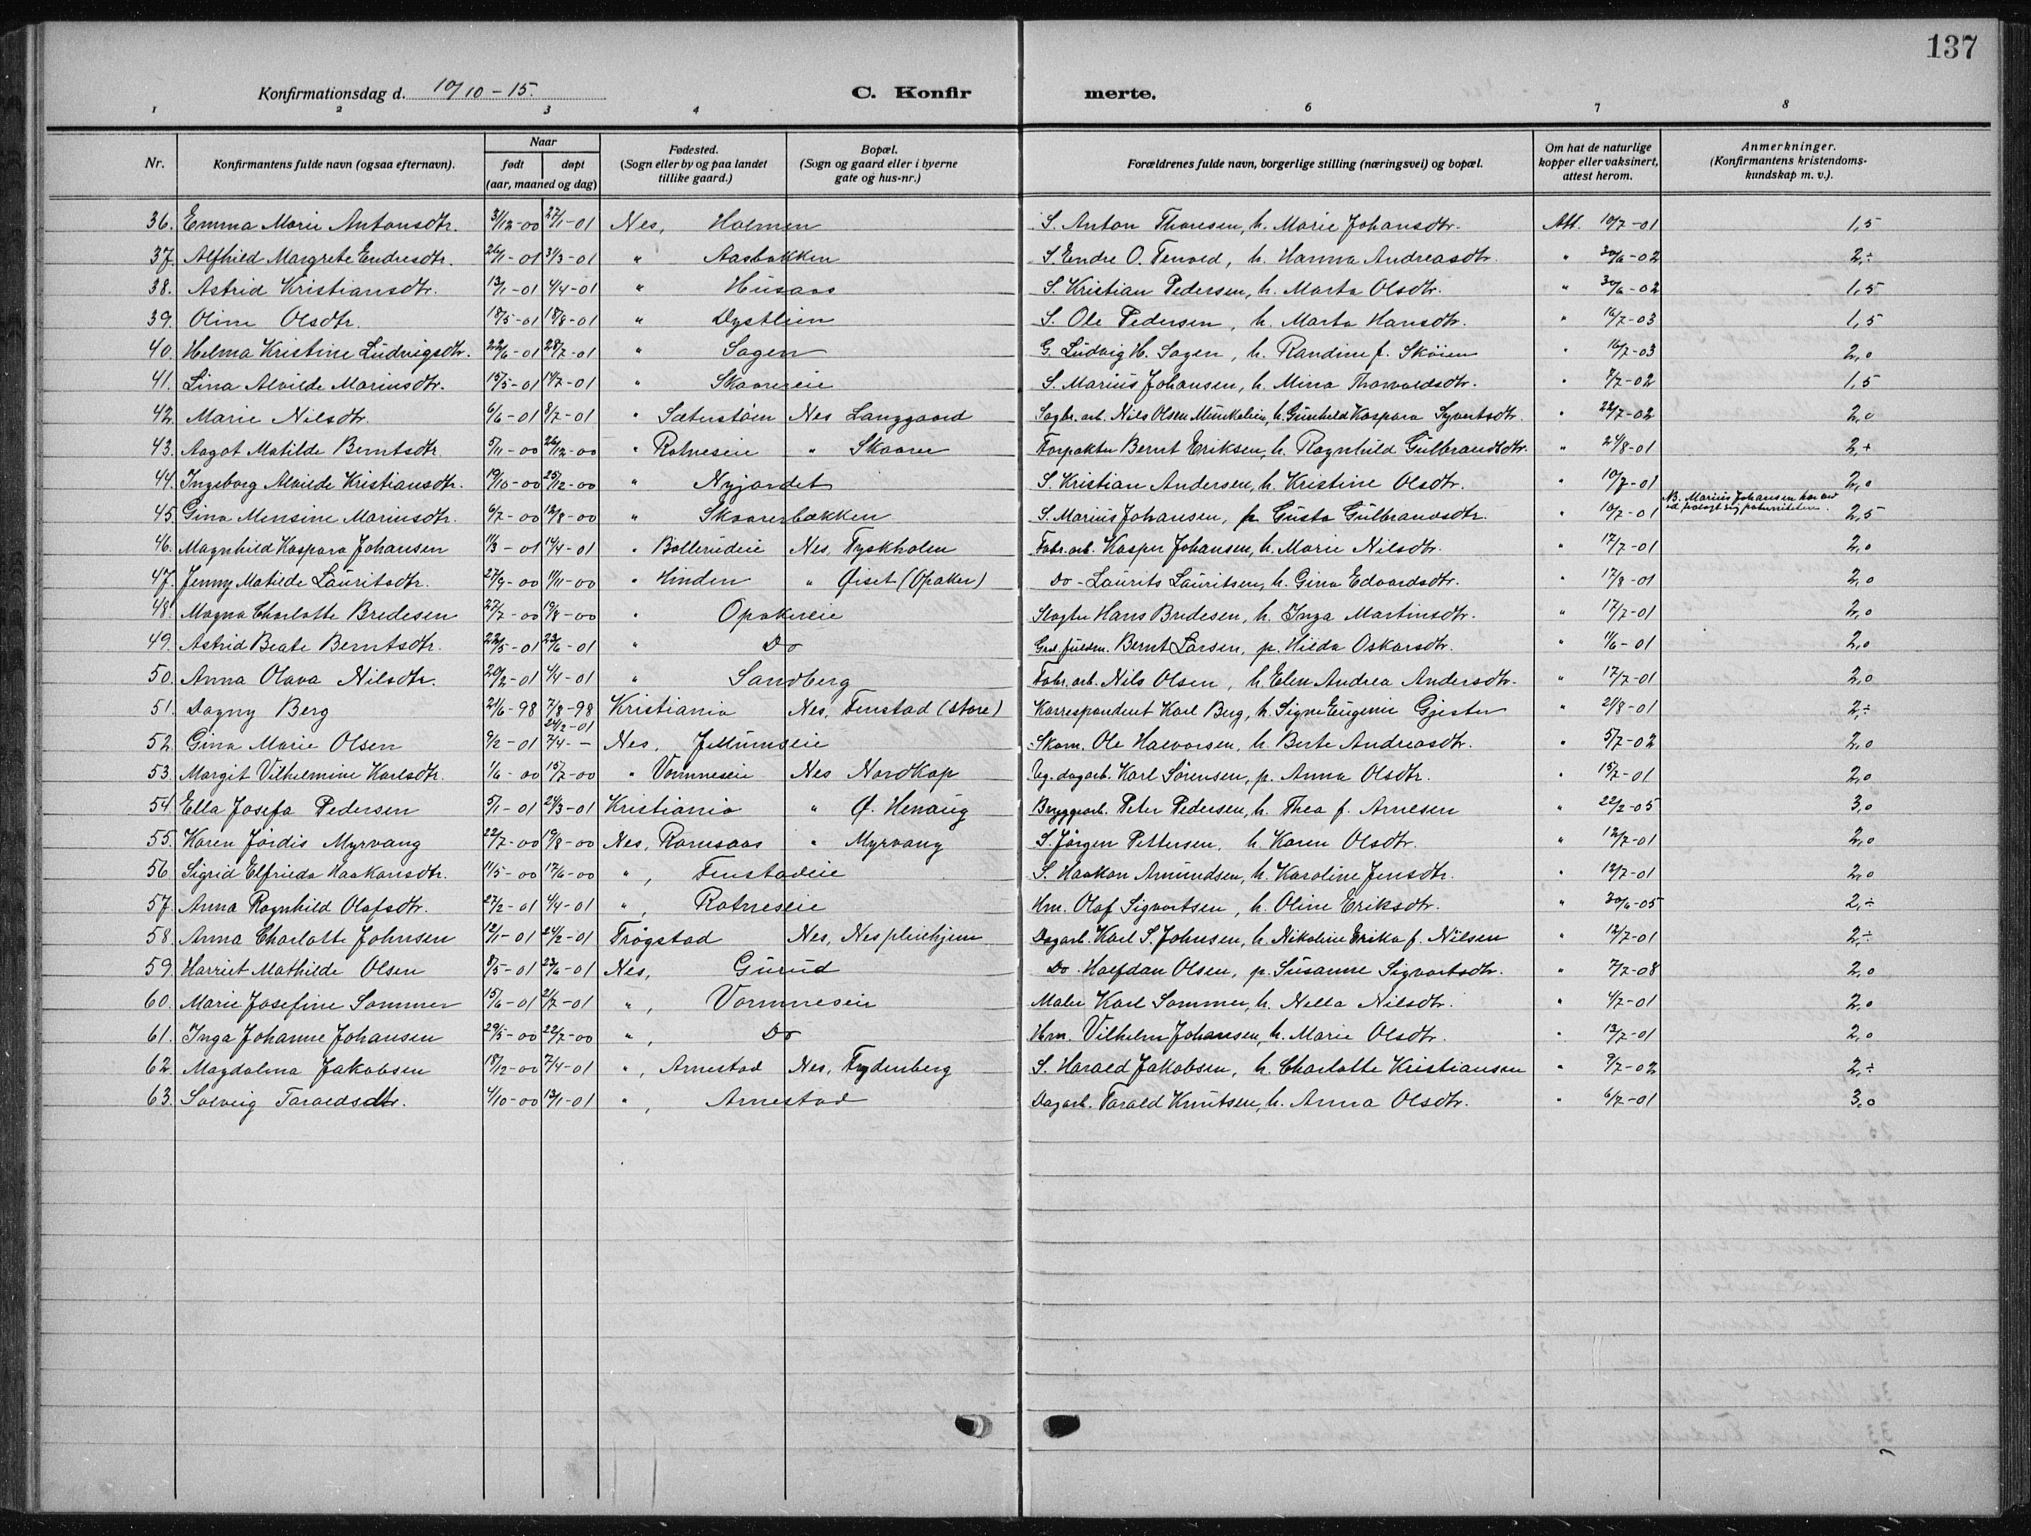 137
Konfirmationsdag d. 10/10-15. C. Konfir merte.
1 2 3 4 6 7 8
Nr. Konfirmantens fulde navn (ogsaa efternavn). Naar født døpt (aar, maaned og dag) Fødested. (Sogn eller by og paa landet tillike gaard.) Bopæl. (Sogn og gaard eller i byerne gate og hus-nr.) Forældrenes fulde navn, borgerlige stilling (næringsvei) og bopæl. Om hat de naturlige kopper eller vaksinert, attest herom. Anmerkninger. (Konfirmantens kristendoms-kundskap m. v.).
36. Emma Marie Antonsdtr. 31/12-00 27/1-01 Nes, Holmen S. Anton Thoresen, h. Marie Johansdtr. Att. 10/7-01 1,5
37. Alfhild Margrete Endresdtr. 26/1-01 31/3-01 " Aasbakken S. Endre O. Tenold, h. Hanna Andreasdtr. " 30/6-02 2,÷
38. Astrid Kristiansdtr. 13/1-01 4/4-01 " Husaas S. Kristian Pedersen, h. Marta Olsdtr. " 30/6-02 1,5
39. Oline Olsdtr. 18/5-01 18/8-01 " Dystlien S. Ole Pedersen, h. Marta Hansdtr. " 16/7-03 1,5
40. Helma Kristine Ludvigsdtr. 22/6-01 28/7-01 " Sagen G. Ludvig H. Sagen, h. Randine f. Skøien " 16/7-03 2,0
41. Lina Alvilde Mariusdtr. 15/5-01 14/7-01 " Skaarereie S. Marius Johansen, h. Mina Thorvaldsdtr. " 7/7-02 1,5
42. Marie Nilsdtr. 6/6-01 8/7-01 " Sæterstøen Nes Langgaard Sagbr.arb. Nils Olsen Munkebein, h. Gunhild Kaspara Syvertsdtr. " 22/7-02 2,0
43. Aagot Matilde Berntsdtr 5/11-00 26/12-00 " Rotneseie " Skaarer Forpakter Bernt Eriksen, h. Ragnhild Gulbrandsdtr. " 24/8-01 2,÷
44. Ingeborg Alvilde Kristiansdtr. 19/10-00 25/12-00 " Nyjordet S. Kristian Andersen, h. Kristine Olsdtr. " 10/7-01 2,0
45. Gina Mensine Mariusdtr. 6/7-00 12/8-00 " Skaarerbakken S. Marius Johansen, p. Gusta Gulbrandsdtr. " 10/7-01 NB. Marius Johansen har ved ed fralagt sig paterniteten. 2,5
46. Magnhild Kaspara Johansen 11/3-01 14/4-01 " Bollerudeie Nes, Tyskholen Fabr.arb. Kasper Johansen, h. Marie Nilsdtr. " 17/7-01 2,0
47. Jenny Matilde Lauritsdtr. 27/9-00 11/11-00 " Hinden " Øiset (Opaker) Do - Laurits Lauritsen, h. Gina Edvardsdtr. " 17/8-01 2,0
48. Magna Charlotte Bredesen 27/7-00 19/8-00 " Opakereie Slagter Hans Bredesen, h. Inga Martinsdtr. " 17/7-01 2,0
49. Astrid Beate Berntsdtr. 22/5-01 23/6-01 " Do Grd.fuldm. Bernt Larsen, p. Hilda Oskarsdtr. " 11/6-01 2,0
50. Anna Olava Nilsdtr. 20/2-01 4/4-01 " Sandberg Fabr.arb. Nils Olsen, h. Elen Andrea Andersdtr. " 17/7-01 2,0
51. Dagny Berg 21/6-98 7/8-98 Kristiania Nes, Fenstad (store) Korrespondent Karl Berg, h. Signe Eugenie Gjester " 21/8-01 2,÷
52. Gina Marie Olsen 9/2-01 24/2-01 7/4-- Nes, Jellumseie Skom. Ole Halvorsen, h. Berte Andreasdtr. " 5/7-02 2,0
53. Margit Vilhelmine Karlsdtr. 1/6-00 15/7-00 " Vormneseie Nes Nordkap Ug. dagarb. Karl Sørensen, p. Anna Olsdtr. " 15/7-01 2,0
54. Ella Josefa Pedersen 5/1-01 24/3-01 Kristiania " Ø. Henaug Bryggearb. Peter Pedersen, h. Thea f. Arnesen " 22/2-05 3,0
55. Karen Jørdis Myrvang 22/7-00 19/8-00 Nes, Ramsaas " Myrvang S. Jørgen Pettersen, h. Karen Olsdtr. " 12/7-01 2,0
56. Sigrid Elfrieda Haakonsdtr. 11/5-00 17/6-00 ", Fenstadeie S. Haakon Amundsen, h. Karoline Jensdtr. " 12/7-01 2,0
57. Anna Ragnhild Olafsdtr. 27/2-01 4/4-01 ", Rotneseie Hm. Olaf Sigvartsen, h. Oline Eriksdtr. " 30/6-05 2,÷
58. Anna Charlotte Johnsen 12/1-01 24/2-01 Trøgstad Nes, Nes pleiehjem Dagarb. Karl S. Johnsen, h. Nikoline Erika f. Nilsen " 12/7-01 2,÷
59. Harriet Mathilde Olsen 8/5-01 23/6-01 Nes, Gurud Do - Halfdan Olsen, p. Susanne Sigvartsdtr. " 7/7-08 2,0
60. Marie Josefine Sommer 15/6-01 21/7-01 ", Vormneseie Maler Karl Sommer, h. Nella Nilsdtr. " 4/7-01 2,0
61. Inga Johanne Johansen 29/5-00 22/7-00 ", Do Hm. Vilhelm Johansen, h. Marie Olsdtr. " 13/7-01 2,0
62. Magdalena Jakobsen 18/12-00 7/4-01 ", Arnestad Nes, Frydenberg S. Harald Jakobsen, h. Charlotte Kristiansen " 9/7-02 2,÷
63. Solveig Taraldsdtr. 4/10-00 13/1-01 ", Arnestad Dagarb. Tarald Knutsen, h. Anna Olsdtr. " 6/7-01 3,0